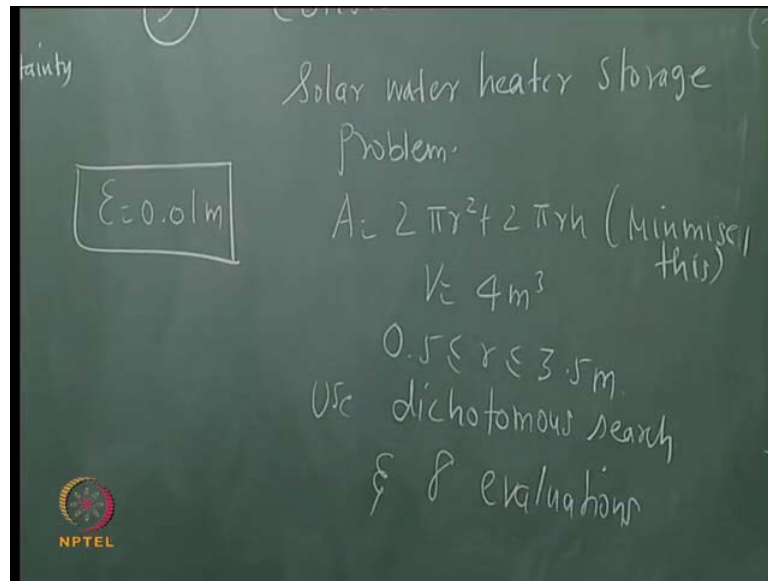 tainty
Solar water heater storage
Problem.
ε=0.01m
A= 2πr²+2πrh (Minmise
this)
V= 4m³
0.5≤ r ≤ 3.5m.
Use dichotomous search
& 8 evaluations
NPTEL